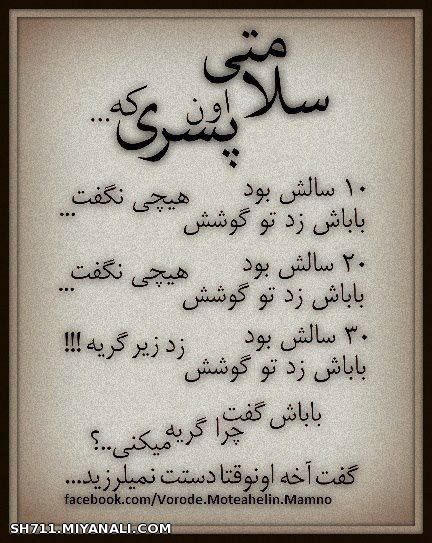 سلامتی
اون پسری که...
۱۰ سالش بود
باباش زد تو گوشش هیچی نگفت...
۲۰ سالش بود
باباش زد تو گوشش هیچی نگفت...
۳۰ سالش بود
باباش زد تو گوشش زد زیر گریه !!!
باباش گفت
چرا گریه میکنی..؟
گفت آخه اونوقتا دستت نمیلرزید...
facebook.com/Vorode.Moteahelin.Mamno
SH711.MIYANALI.COM